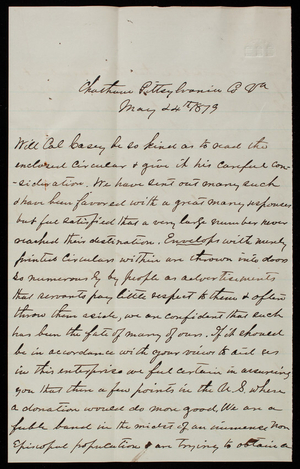 Chatham Pittsylvania Co Va
May 24th 1879
Will Col Casey be so kind as to read the
enclosed Circular & give it his careful con-
-sideration. We have sent out many such
& have been favored with a great many responses
but feel satisfied that a very large number never
reached their destination. Envelops with merely
printed Circulars within are thrown into doors
so numerously by people as advertisements
that servants pay little respect to them & often
throw them aside, we are confident that such
has been the fate of many of ours. If it should
be in accordance with your views to aid us
in this enterprise we feel certain in assuring
you that there a few points in the U.S. where
a donation would do more good. We are a
feble band in the midst of an immense Non
Episcopal population & are trying to obtain a